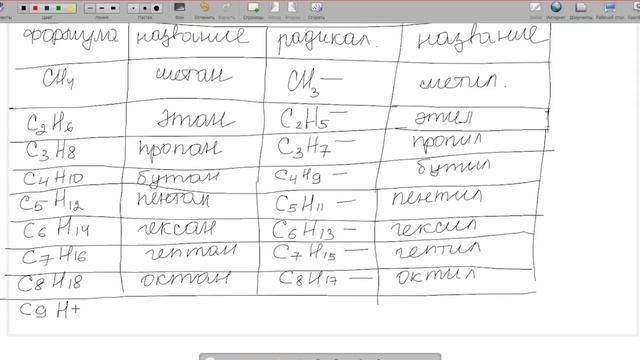 Цвет Линия Ластик Фон Отменить Вернуть Страницы Назад Вперед Стереть Доска Интернет Документы Рабочий стол
формула название радикал. название
CH4 метан CH3 — метил.
C2H6 этан C2H5 — этил
C3H8 пропан C3H7 — пропил
C4H10 бутан C4H9 — бутил
C5H12 пентан C5H11 — пентил
C6H14 гексан C6H13 — гексил
C7H16 гептан C7H15 — гептил
C8H18 октан C8H17 — октил
C9H